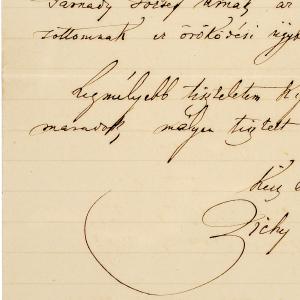 Tárnady József úrnak, az
zottomnak ez öröködési ügyb
Legmélyebb tiszteletem ki
maradok, mélyen tisztelt
Kész
Zichy